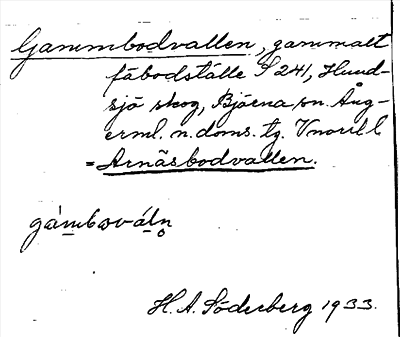 Gammbodvallen, gammalt
fäbodställe S 241, Hund-
sjö skog, Björna sn. Ång-
erml. n. doms. tg. Vnorrl l
= Arnäsbodvallen.
gámbωváln̥
H. A. Söderberg 1933.